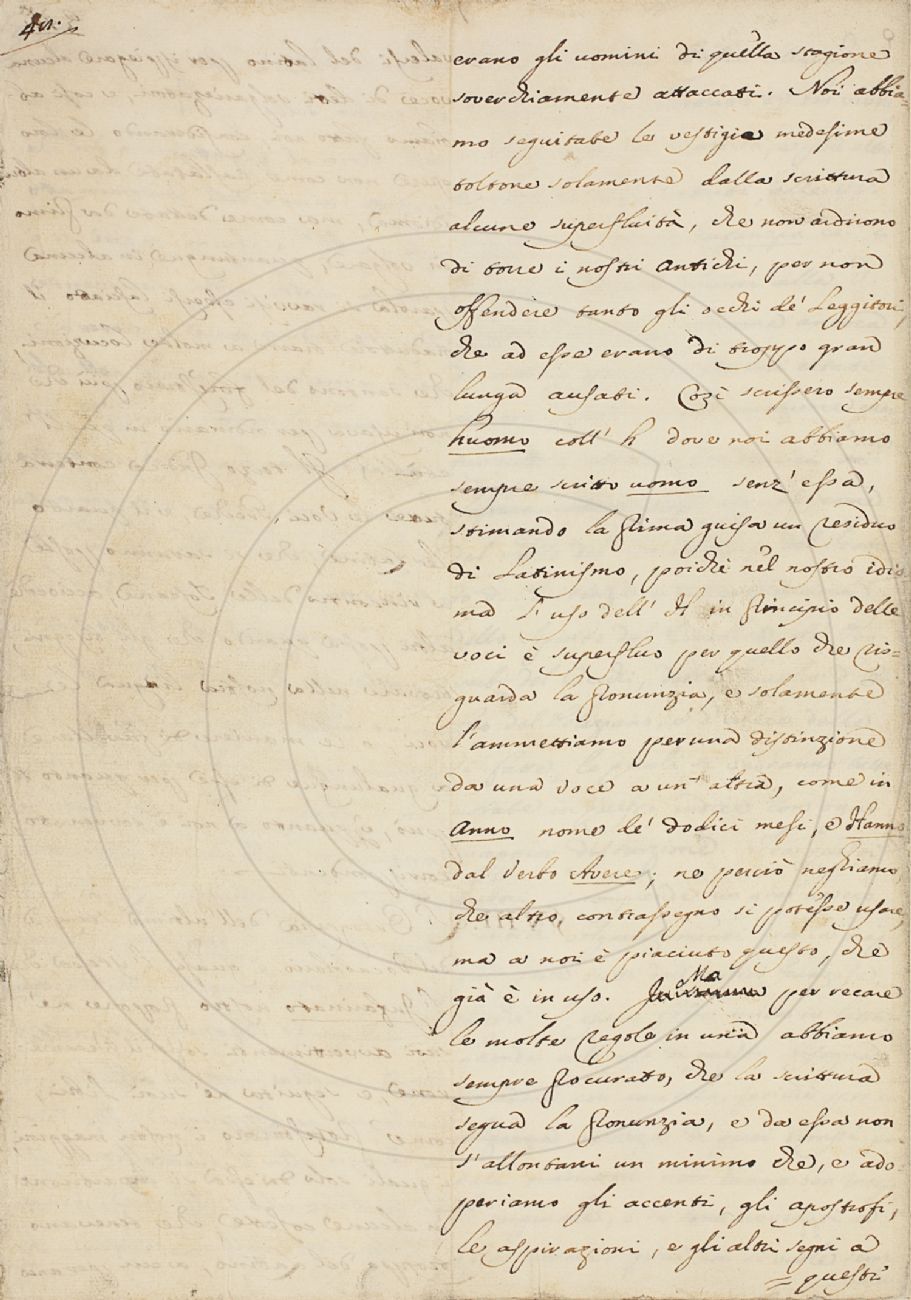 erano gli uomini di quella stagione
soverchiamente attaccati. Noi abbia=
mo seguitate le vestigie medesime
toltone solamente dalla scrittura
alcune superfluità, che non ardirono
di torre i nostri Antichi, per non
offendere tanto gli occhi de' Leggitori,
che ad esse erano di troppo gran
lunga ausati. Così scrissero sempre
huomo coll' h dove noi abbiamo
sempre scritto uomo senz' essa,
stimando la prima guisa un residuo
di Latinismo, poichè nel nostro idio
ma l' uso dell' H in principio delle
voci è superfluo per quello che ris=
guarda la pronunzia, e solamente
l'ammettiamo per una distinzione
da una voce a un' altra, come in
Anno nome de' dodici mesi, e Hanno
dal Verbo Avere; ne perciò neghiamo,
che altro contrassegno si potesse usare,
ma a noi è piaciuto questo, che
già è in uso. Ma per recare
le molte regole in una abbiamo
sempre procurato, che la scrittura
segua la pronunzia, e da essa non
s'allontani un minimo che, e ado
periamo gli accenti, gli apostrofi,
le aspirazioni, e gli altri segni a
= questi